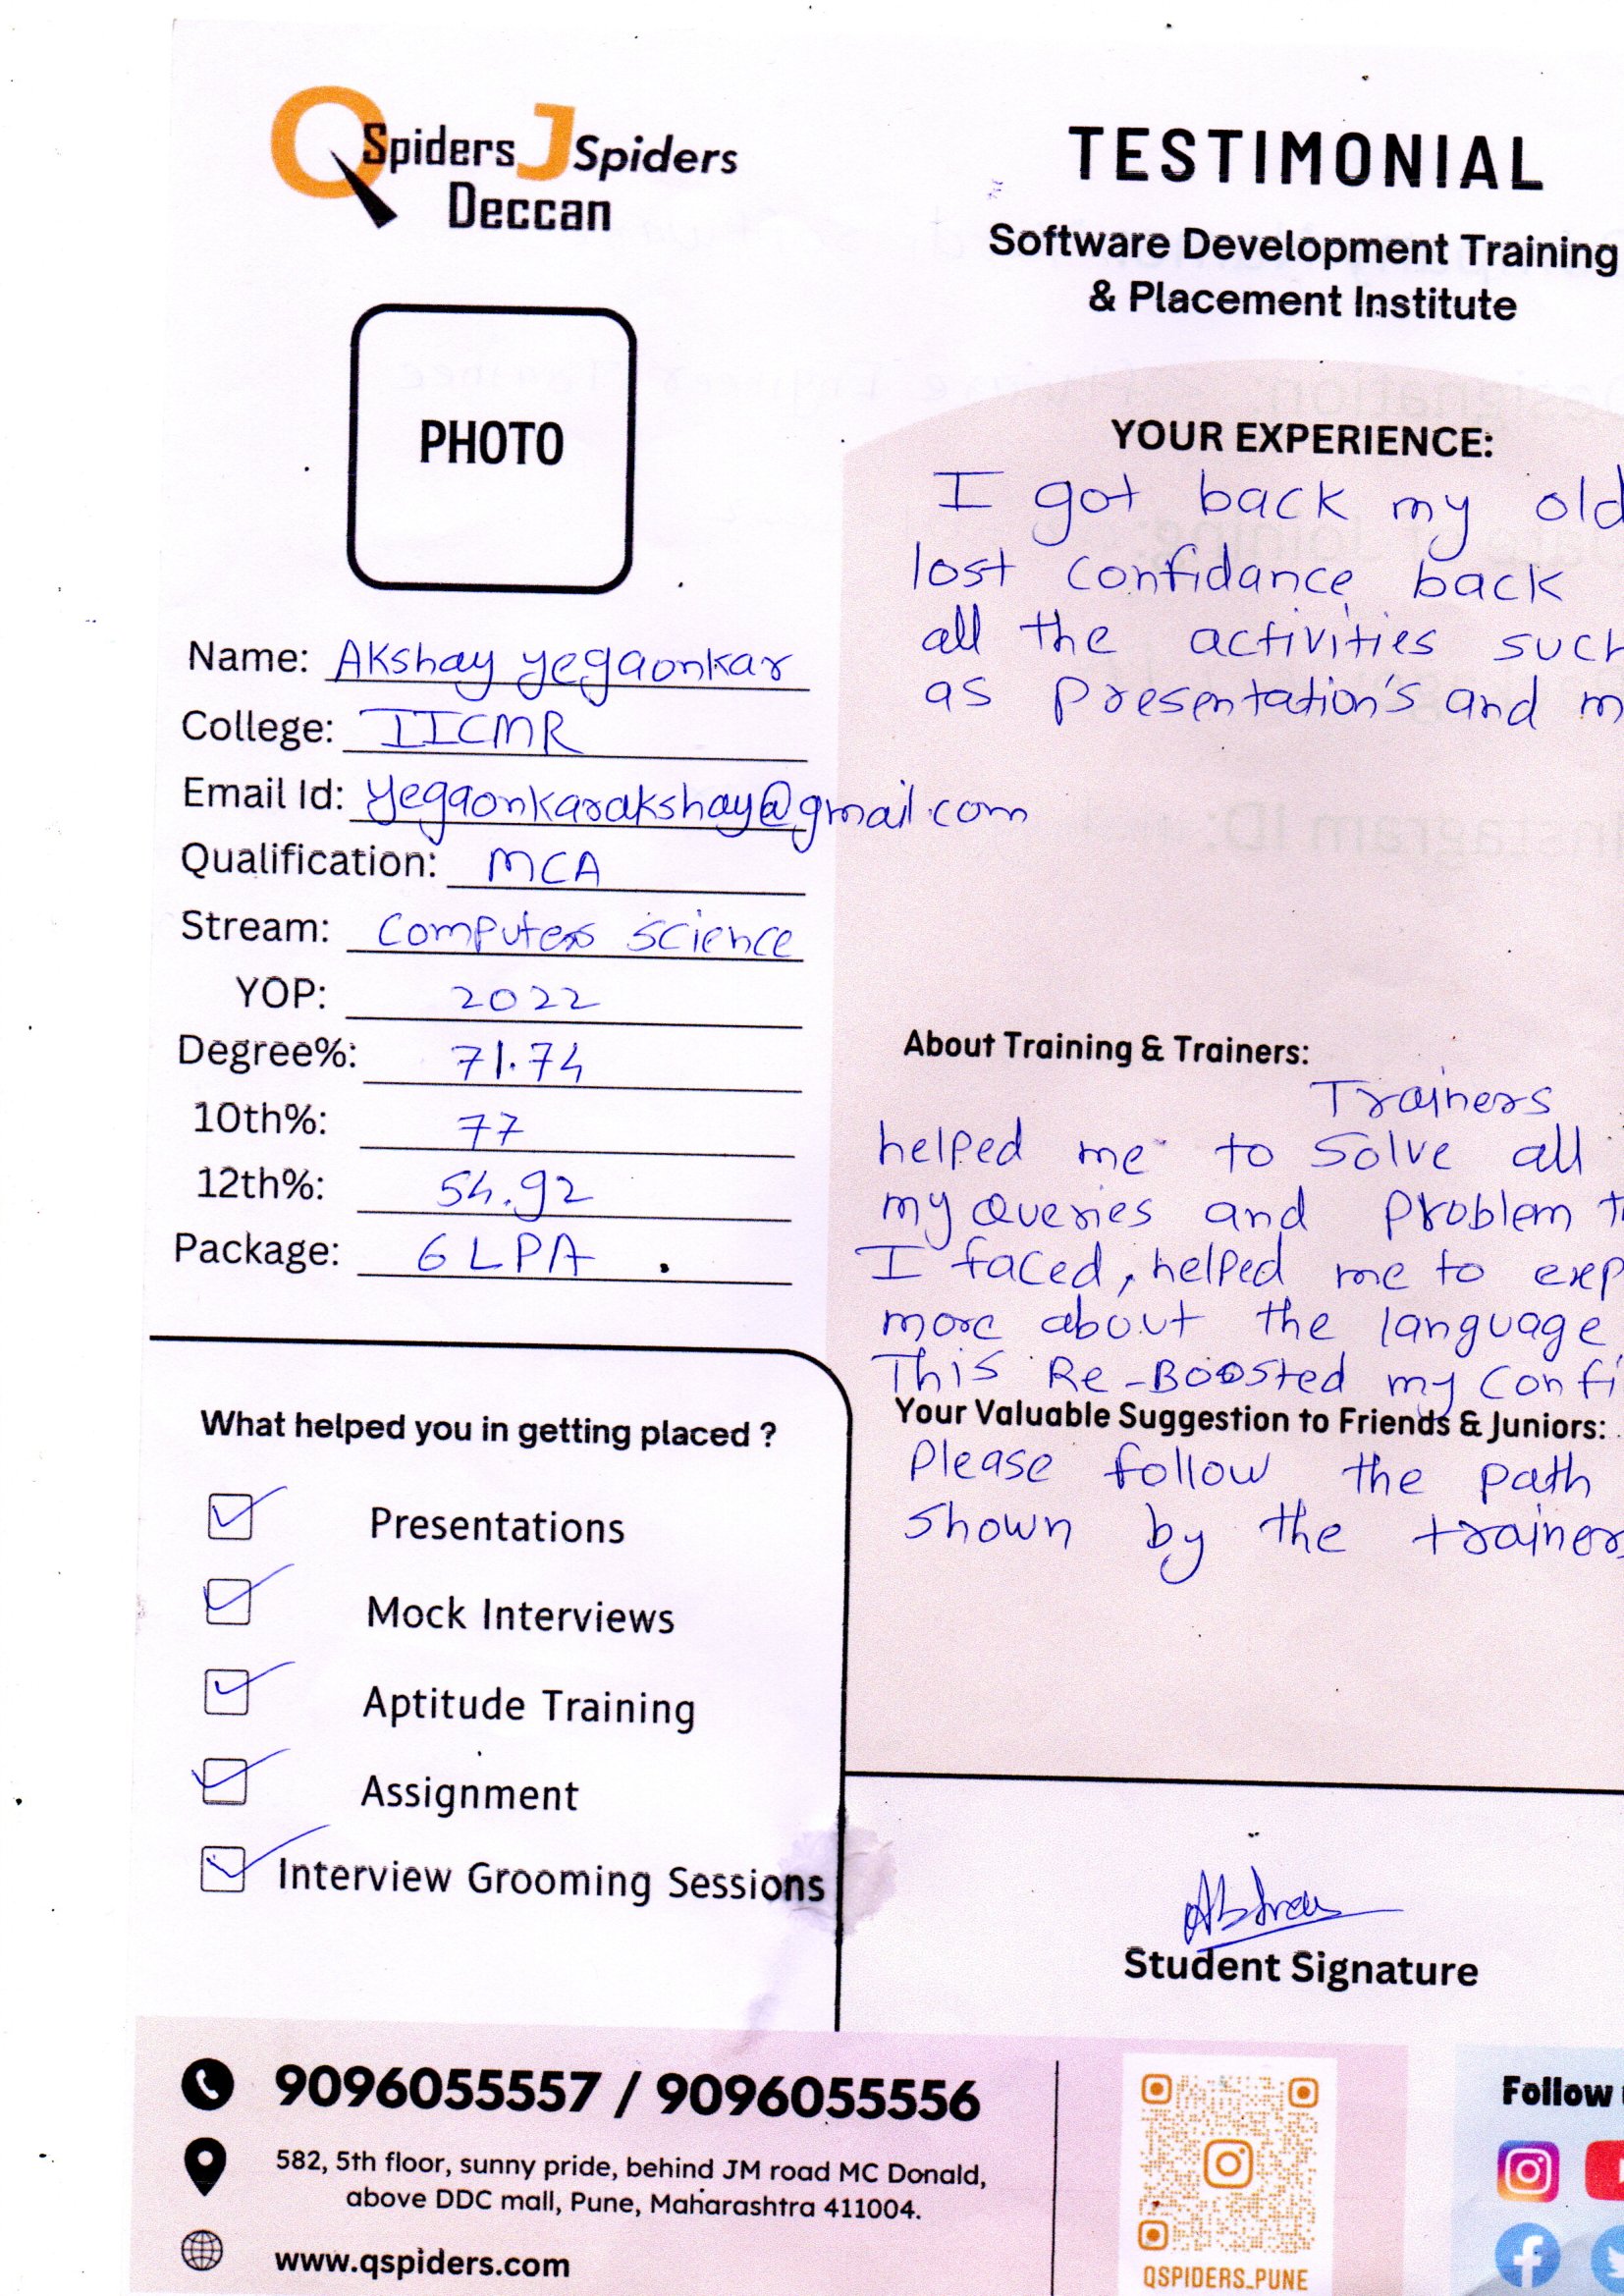 QSpiders JSpiders
Deccan
TESTIMONIAL
Software Development Training
& Placement Institute
PHOTO
Name: Akshay yegaonkar
College: IICMR
Email Id: yegaonkarakshay@gmail.com
Qualification: MCA
Stream: Computer Science
YOP: 2022
Degree%: 71.74
10th%: 77
12th%: 54.92
Package: 6 LPA
What helped you in getting placed ?
Presentations
Mock Interviews
Aptitude Training
Assignment
Interview Grooming Sessions
YOUR EXPERIENCE:
I got back my old
lost confidance back
all the activities such
as Presentation's and m
About Training & Trainers:
Trainers
helped me to solve all
my queries and problem
I faced, helped me to exp
more about the language
This Re-Boosted my Confi
Your Valuable Suggestion to Friends & Juniors:
Please follow the path
shown by the trainer
Student Signature
9096055557 / 9096055556
582, 5th floor, sunny pride, behind JM road MC Donald,
above DDC mall, Pune, Maharashtra 411004.
www.qspiders.com
QSPIDERS_PUNE
Follow